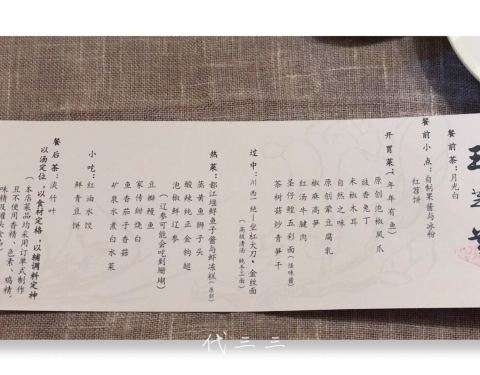 餐前茶：月光白
餐前小点：自制果酱与冰粉
红苕饼
开胃菜：（年年有鱼）
原创泡椒凤爪
豉香兔丁
米椒木耳
自然之味
原创荤豆腐乳
椒麻高笋
红汤牛腱肉
圣仔鳇五彩面（怪味酱）
茶树菇炒青笋干
过中：川西一绝—坐杠大刀·金丝面
（高级清汤 纯手工面）
热菜：都江堰鲟鱼子酱与鲜冻糕（原创）
蒸黄鱼狮子头
酸辣纯正金钩翅
泡椒鲜辽参
（辽参可能会吃到珊瑚）
豆瓣鳗鱼
家传甜烧白
鱼香茄子香菇
矿泉水煮白水菜
小吃：红油水饺
鲜青豆饼
餐后茶：淡竹叶
以汤定位，以食材定格，以辅调料定神
（本店菜品均采用订单式制作
且不使用香精、色素、鸡精、
代三三